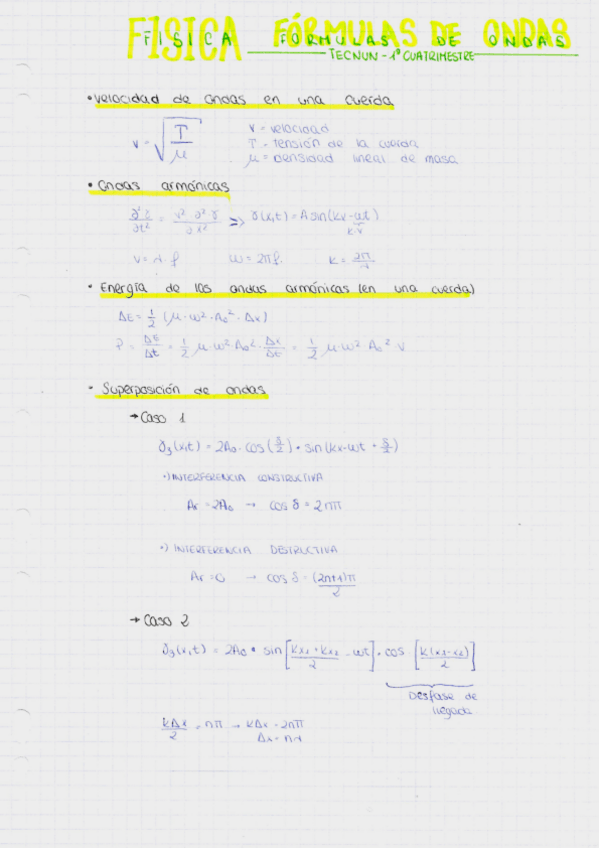 FÍSICA FÓRMULAS DE ONDAS
TECNUN - 1º CUATRIMESTRE
• Velocidad de ondas en una cuerda
v = √(T/μ)
v = velocidad
T = tensión de la cuerda
μ = densidad lineal de masa
• Ondas armónicas
∂²γ/∂t² = v² ∂²γ/∂x² => γ(x,t) = A sin(kx-wt)
k·v
v = λ·f w = 2πf k = 2π/λ
• Energía de las ondas armónicas (en una cuerda)
ΔE = 1/2 (μ·w²·A₀²·Δx)
P = ΔE/Δt = 1/2 μ·w² A₀²·Δx/Δt = 1/2 μ·w² A₀² v
• Superposición de ondas
→ Caso 1
γ₃(x,t) = 2A₀·cos(δ/2)·sin(kx-wt + δ/2)
·) INTERFERENCIA CONSTRUCTIVA
Ar = 2A₀ → cos δ = 2nπ
·) INTERFERENCIA DESTRUCTIVA
Ar = 0 → cos δ = (2n+1)π/2
→ Caso 2
γ₃(x,t) = 2A₀ • sin[(kx₁ + kx₂)/2 - wt]·cos[k(x₁-x₂)/2]
Desfase de
llegada
kΔx/2 = nπ → kΔx = 2nπ
Δx = nλ